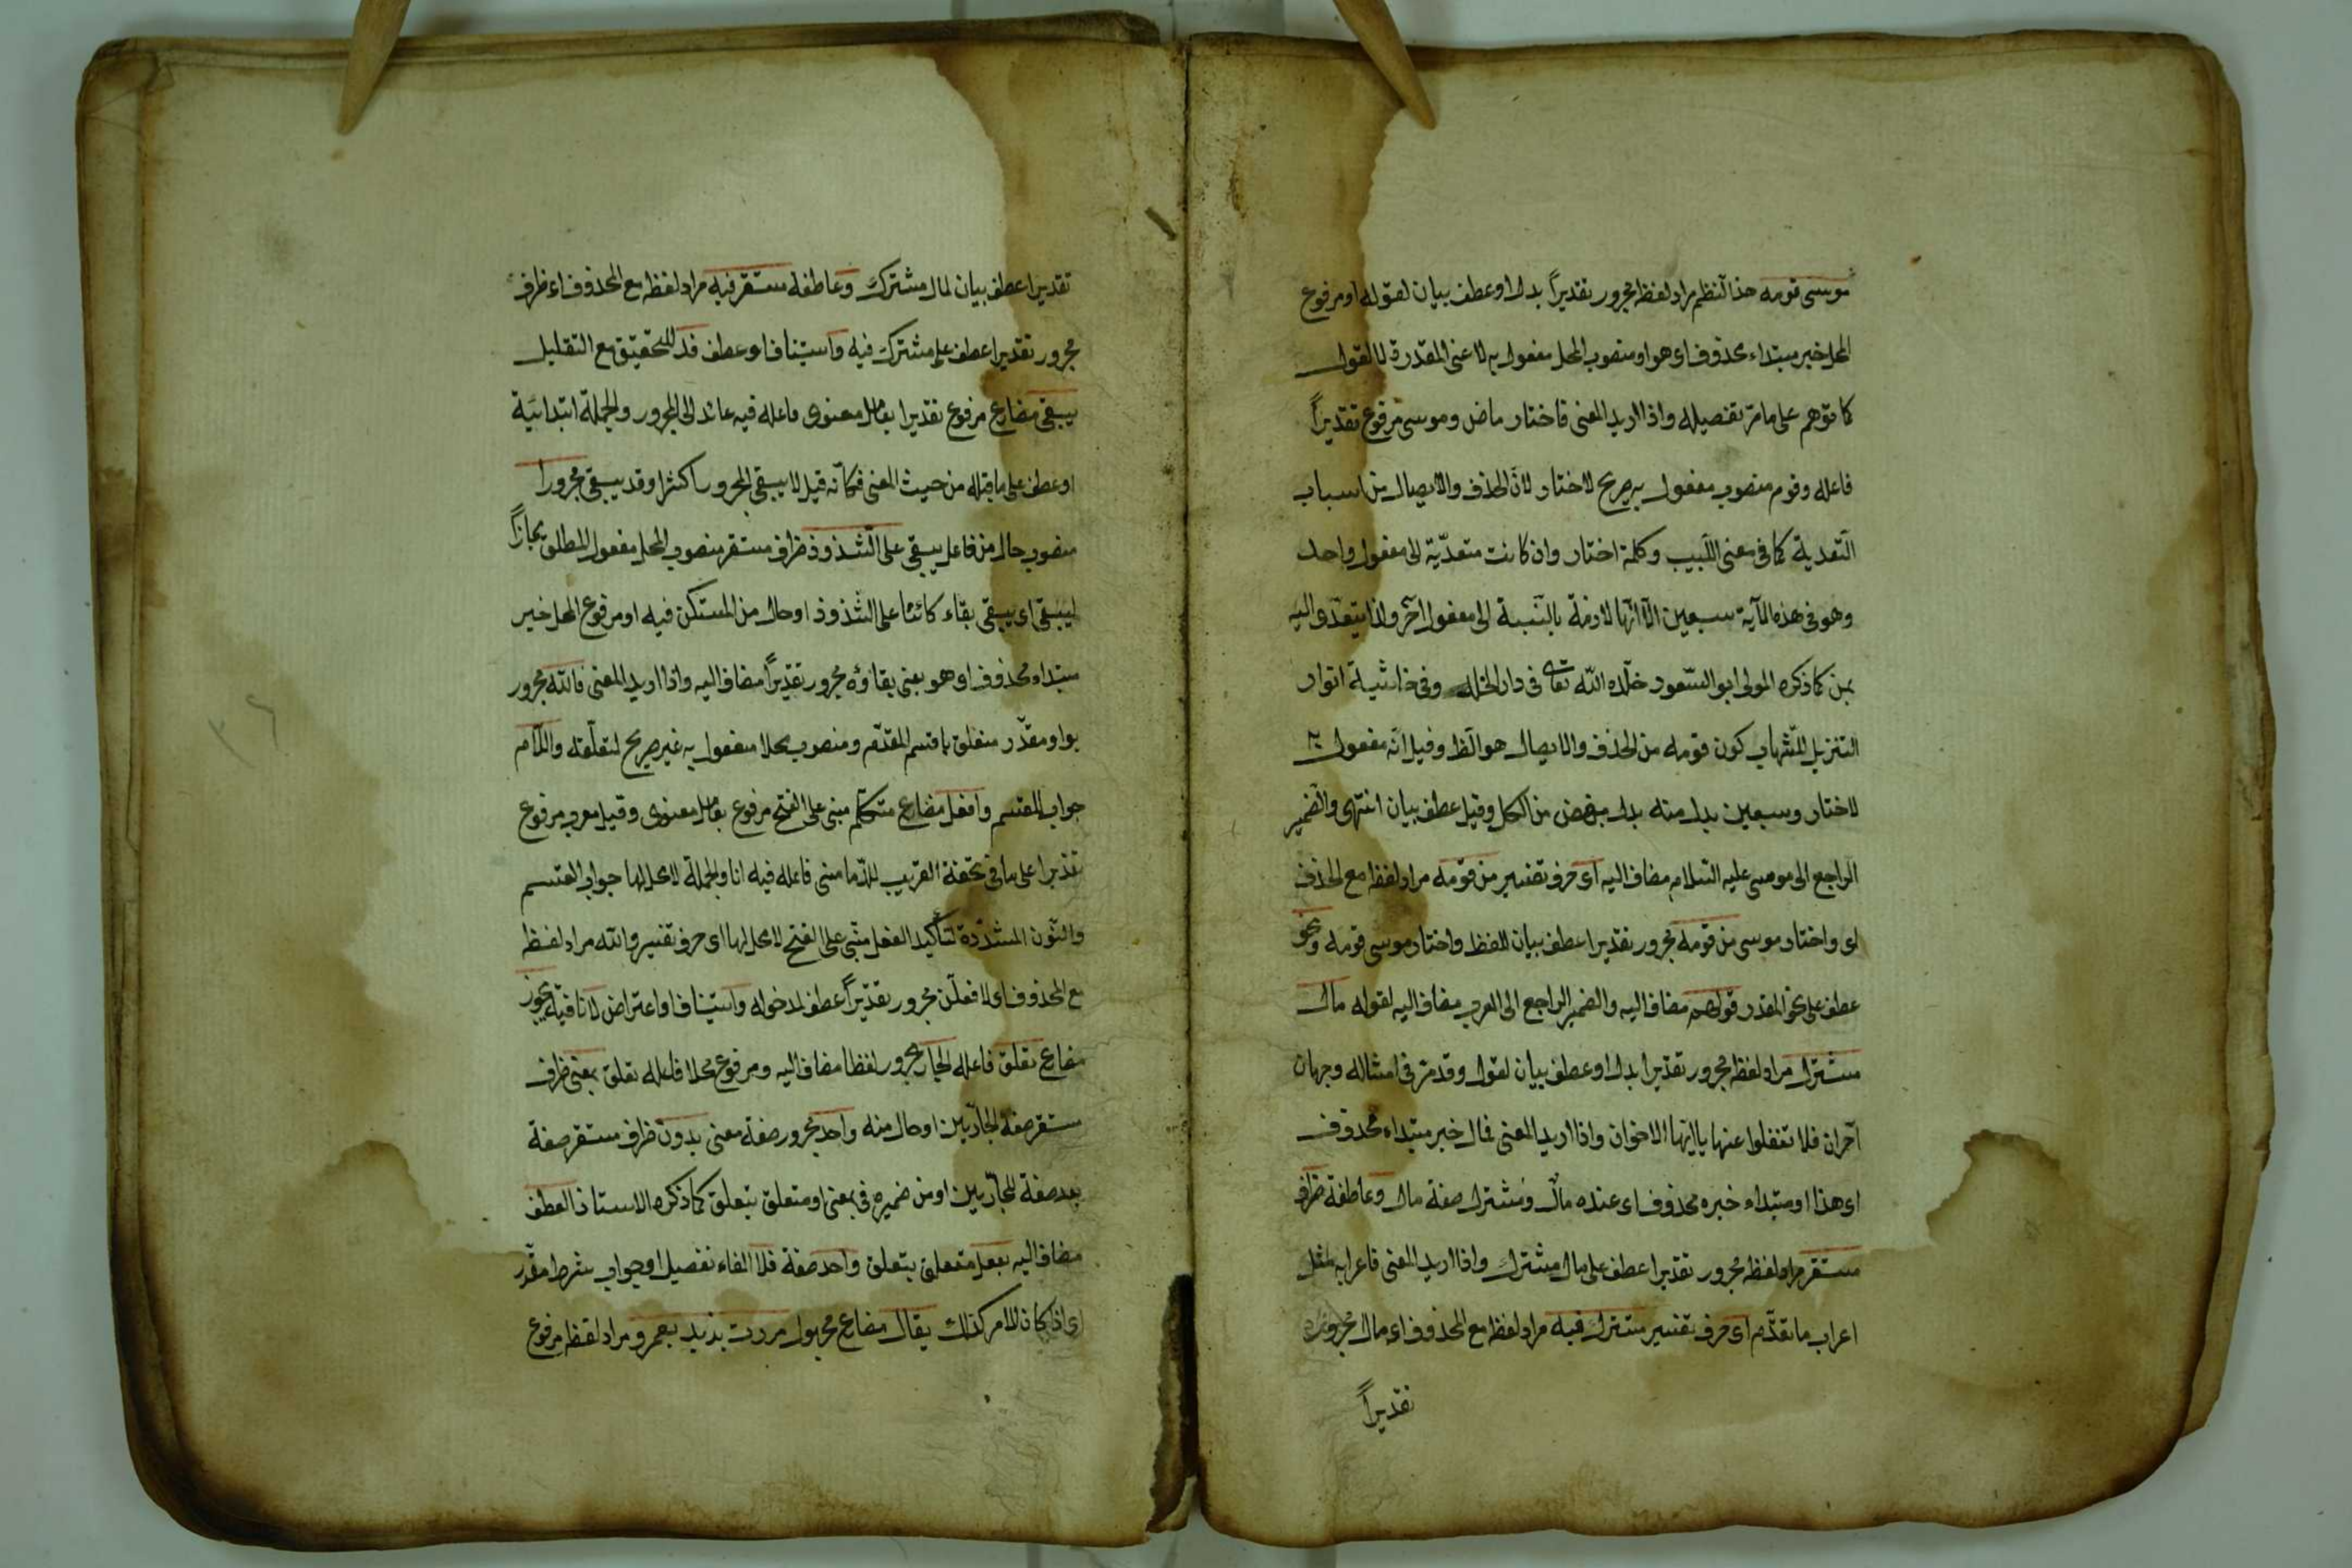 موسى قومه هذا النظم مراد لفظه مجرور تقديراً بدل او عطف بيان لقوله او مرفوع
المحل خبر مبتداء محذوف اى هو او منصوب المحل مفعول به لاعنى المقدرة لا القول
كما توهم على ما مرّ تفصيله واذا اريد المعنى فاختار ماض وموسى مرفوع تقديراً
فاعله وقوم منصوب مفعول به صريح لاختار لانّ الحذف والايصال من اسباب
التّعدية كما فى معنى اللّبيب وكلمة اختار وان كانت متعدّية الى مفعول واحد
وهو فى هذه الآية سبعين الّا انّها لازمة بالنّسبة الى مفعول آخر ولذا يتعدّى اليه
بمن كما ذكره المولى ابو السّعود خلّده اللّه تعالى فى دار الخلد وفى حاشية انوار
التنزيل للشّهاب كون قومه من الحذف والايصال هو الظ وقيل انّه مفعول به
لاختار وسبعين بدل منه بدل بعض من الكل وقيل عطف بيان انتهى والضّمير
الراجع الى موسى عليه السّلام مضاف اليه اى حرف تفسير من قومه مراد لفظه مع الحذف
اى واختار موسى من قومه مجرور تقديرا عطف بيان للفظ واختار موسى قومه ونحو
عطف على نحو المقدر قولهم مضاف اليه والضمير الراجع الى العرب مضاف اليه لقوله مال
مشترك مراد لفظه مجرور تقديرا بدل او عطف بيان لقول وقد مرّ فى امثاله وجهان
آخران فلا تغفلوا عنها يا ايّها الاخوان واذا اريد المعنى فمال خبر مبتداء محذوف
اى هذا او مبتداء خبره محذوف اى عنده مال ومشترك صفة مال وعاطفة ظرف
مستقر مراد لفظه مجرور تقديرا عطف على مال مشترك واذا اريد المعنى فاعرابه مثل
اعراب ما تقدّم اى حرف تفسير مشترك فيه مراد لفظه مع المحذوف اى مال مجرور
تقديراً
تقديرا عطف بيان لمال مشترك وعاطفة مستقر فيه مراد لفظه مع المحذوف اى ظرف
مجرور تقديرا عطف على مشترك فيه واستينافا وعطف قد للتحقيق مع التقليل
يبقى مضارع مرفوع تقديرا بعامل معنوى فاعله فيه عائد الى المجرور والجملة ابتدائيّة
او عطف على ما قبله من حيث المعنى فكانّه قيل لا يبقى المجرور اكثرا وقد يبقى مجرورا
منصوب حال من فاعل يبقى على الشّذوذ ظرف مستقر منصوب المحل مفعول المطلق مجازاً
ليبقى اى يبقى بقاء كائنا على الشّذوذ او حال من المستكن فيه او مرفوع المحل خبر
مبتداء محذوف او هو يعنى بقاؤه مجرور تقديراً مضاف اليه واذا اريد المعنى فاللّه مجرور
بواو مقدّر متعلق باقسم المقدّم ومنصوب محلا مفعول به غير صريح لتعلّقه واللّام
جواب للقسم وافعل مضارع متكلّم مبنى على الفتح مرفوع بعامل معنوى وقيل معرب مرفوع
تقديرا على ما فى تحفة الغريب للدّمامنى فاعله فيه انا والجملة لا محل لها جواب القسم
والنّون المشدّدة لتأكيد الفعل مبنى على الفتح لا محل لها اى حرف تفسير واللّه مراد لفظه
مع المحذوف اى لا فعلّن مجرور تقديراً عطف لمدخوله واستينافا واعتراض لا نافية يجوز
مضارع تعلق فاعله الجار مجرور لفظا مضاف اليه ومرفوع محلا فاعله تعلق بمعنى ظرف
مستقر صفة الجارّين او حال منه واحد مجرور صفة معنى بدون ظرف مستقر صفة
بعد صفة للجارّين او من ضميره فى بمعنى او متعلق بتعلق كما ذكره الاستاذ العطف
مضاف اليه بفعل متعلق بتعلق واحد صفة فلا الفاء تفصيل او جواب شرط مقدّر
اى اذا كان الامر كذلك يقال مضارع مجهول مررت بزيد بعمرو مراد لفظه مرفوع